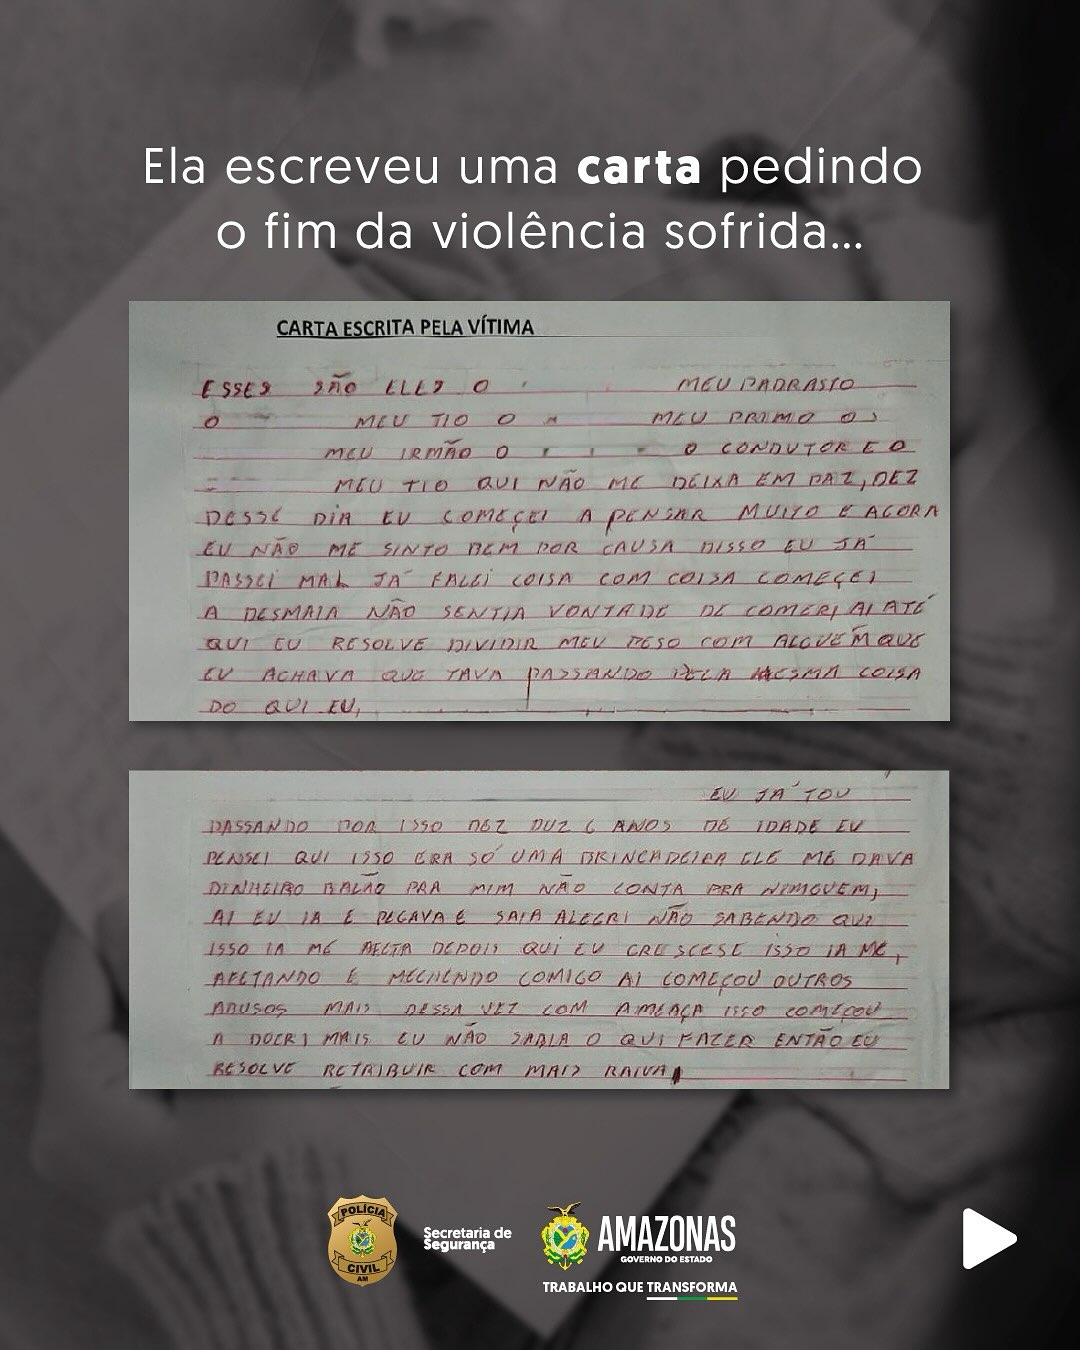 Ela escreveu uma carta pedindo
o fim da violência sofrida...
CARTA ESCRITA PELA VÍTIMA
ESSES SÃO ELES O MEU PADRASTO
O MEU TIO O MEU PRIMO O
MEU IRMÃO O O CONDUTOR E O
MEU TIO QUI NÃO ME DEIXA EM PAZ, DEZ
DESSE DIA EU COMEÇEI A PENSAR MUITO E AGORA
EU NÃO ME SINTO BEM POR CAUSA DISSO EU JÁ
PASSEI MAL JÁ FALEI COISA COM COISA COMEÇEI
A DESMAIA NÃO SENTIA VONTADE DE COMER, AI ATÉ
QUI EU RESOLVE DIVIDIR MEU PESO COM ALGUÉM QUE
EU ACHAVA QUE TAVA PASSANDO PELA MESMA COISA
DO QUI EU,
EU JÁ TOU
PASSANDO POR ISSO DEZ DUZ 6 ANOS DE IDADE EU
PENSEI QUI ISSO ERA SÓ UMA BRINCADEIRA ELE ME DAVA
DINHEIRO BALÃO PRA MIM NÃO CONTA PRA NIMGUEM,
AI EU IA E PEGAVA E SAIA ALEGRI NÃO SABENDO QUI
ISSO IA ME AFETA DEPOIS QUI EU CRESCESE ISSO IA ME,
AFETANDO E MECHENDO COMIGO AI COMEÇOU OUTROS
ABUSOS MAIS DESSA VEZ COM AMEAÇA ISSO COMEÇOU
A DOER MAIS EU NÃO SABIA O QUI FAZER ENTÃO EU
RESOLVE RETRIBUIR COM MAIS RAIVA
POLÍCIA
CIVIL
AM
Secretaria de
Segurança
AMAZONAS
GOVERNO DO ESTADO
TRABALHO QUE TRANSFORMA